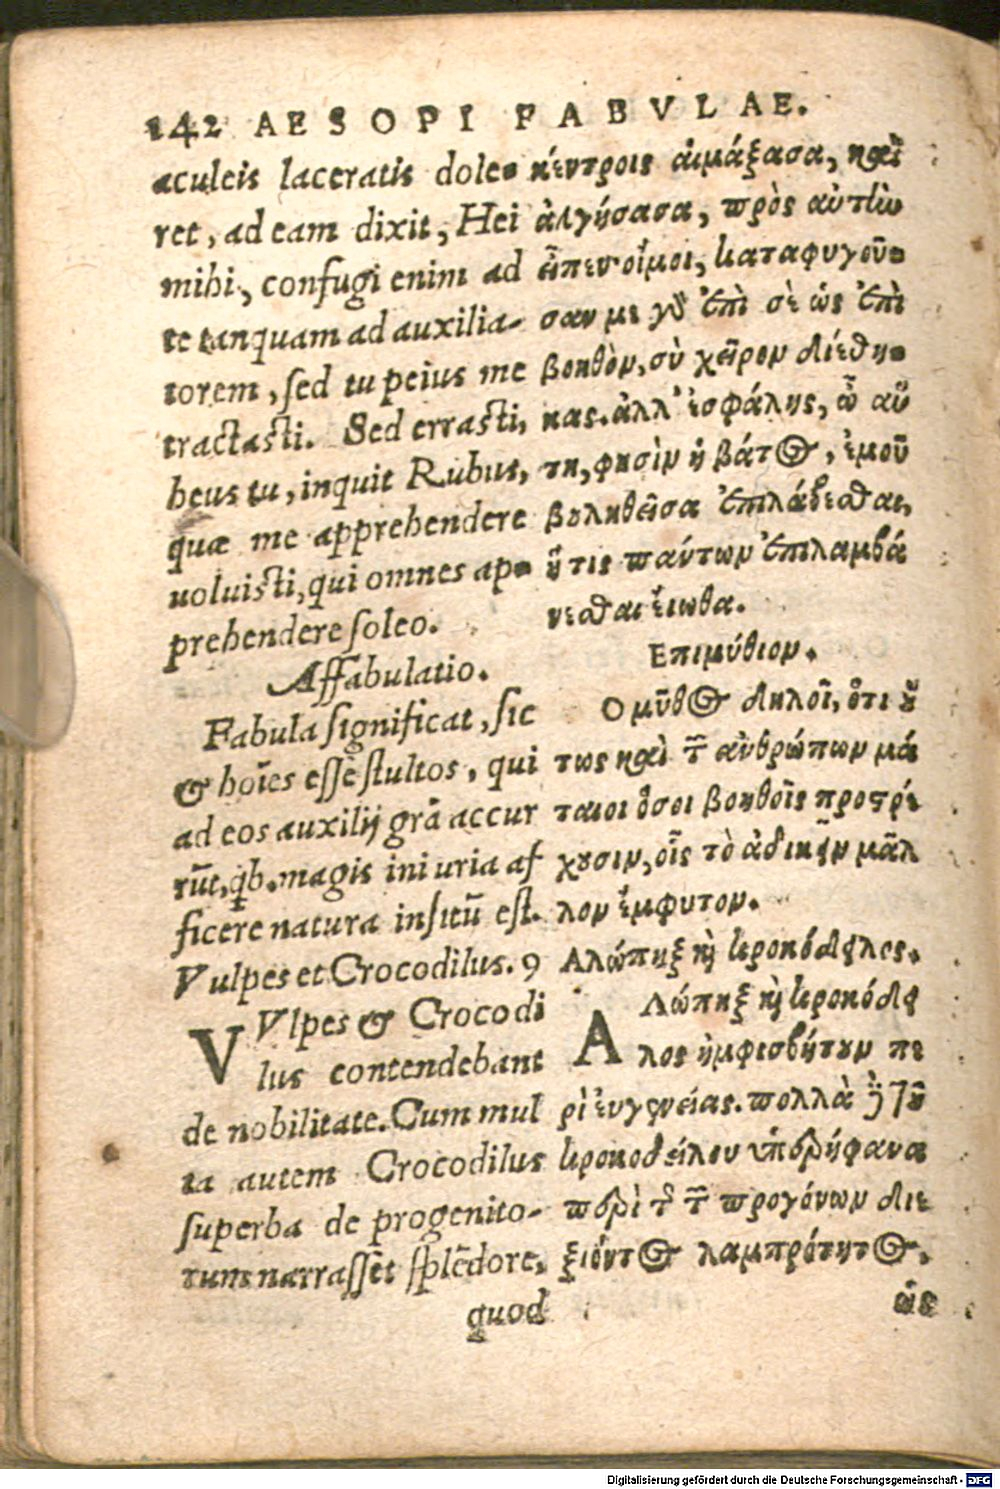 142 AESOPI FABVLAE.
aculeis laceratis dole-
ret, ad eam dixit, Hei
mihi, confugi enim ad
te tanquam ad auxilia-
torem, sed tu peius me
tractasti. Sed errasti,
heus tu, inquit Rubus,
quæ me apprehendere
uoluisti, qui omnes ap-
prehendere soleo.
Affabulatio.
Fabula significat, sic
& hoīes esse stultos, qui
ad eos auxilij grā accur
rūt, qb. magis iniuria af
ficere natura insitū est.
Vulpes et Crocodilus. 9
VVlpes & Crocodi
lus contendebant
de nobilitate. Cum mul
ta autem Crocodilus
superba de progenito-
rum narrasset splēdore,
quod
κέντροις αἱμάξασα, καὶ
ἀλγήσασα, πρὸς αὐτὴν
εἶπεν· οἴμοι, καταφυγοῦ-
σαν με γὸ ἐπὶ σὲ ὡς ἐπὶ
βοηθὸν, σὺ χεῖρον διέθη-
κας. ἀλλ' ἐσφάλης, ὦ αὕ
τη, φησὶν ἡ βάτος, ἐμοῦ
βουληθεῖσα ἐπιλάβεσθαι,
ἥτις πάντων ἐπιλαμβά
νεσθαι εἴωθα.
Επιμύθιον.
Ο μῦθος δηλοῖ, ὅτι οὕ
τως καὶ τῶν ἀνθρώπων μά
ταιοι ὅσοι βοηθοῖς προστρέ
χουσιν, οἷς τὸ ἀδικεῖν μᾶλ
λον ἔμφυτον.
Αλώπηξ καὶ κροκόδειλος.
Αλώπηξ καὶ κροκόδει
λος ἠμφισβήτουν πε
ρὶ εὐγενείας. πολλὰ δὲ τοῦ
κροκοδείλου ὑπερήφανα
περὶ τῆς τῶν προγόνων διε
ξιόντος λαμπρότητος,
ὡς
Digitalisierung gefördert durch die Deutsche Forschungsgemeinschaft - DFG